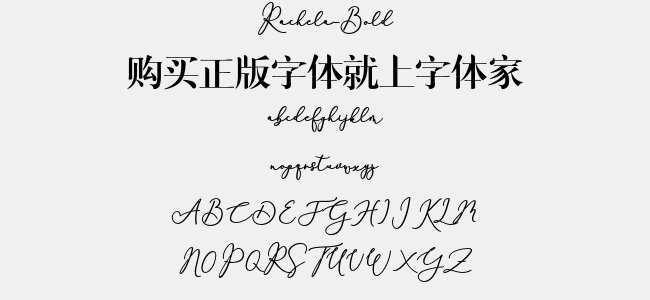 Rachela-Bold
购买正版字体就上字体家
abcdefghijklm
nopqrstuvwxyz
ABCDEFGHIJKLM
NOPQRSTUVWXYZ